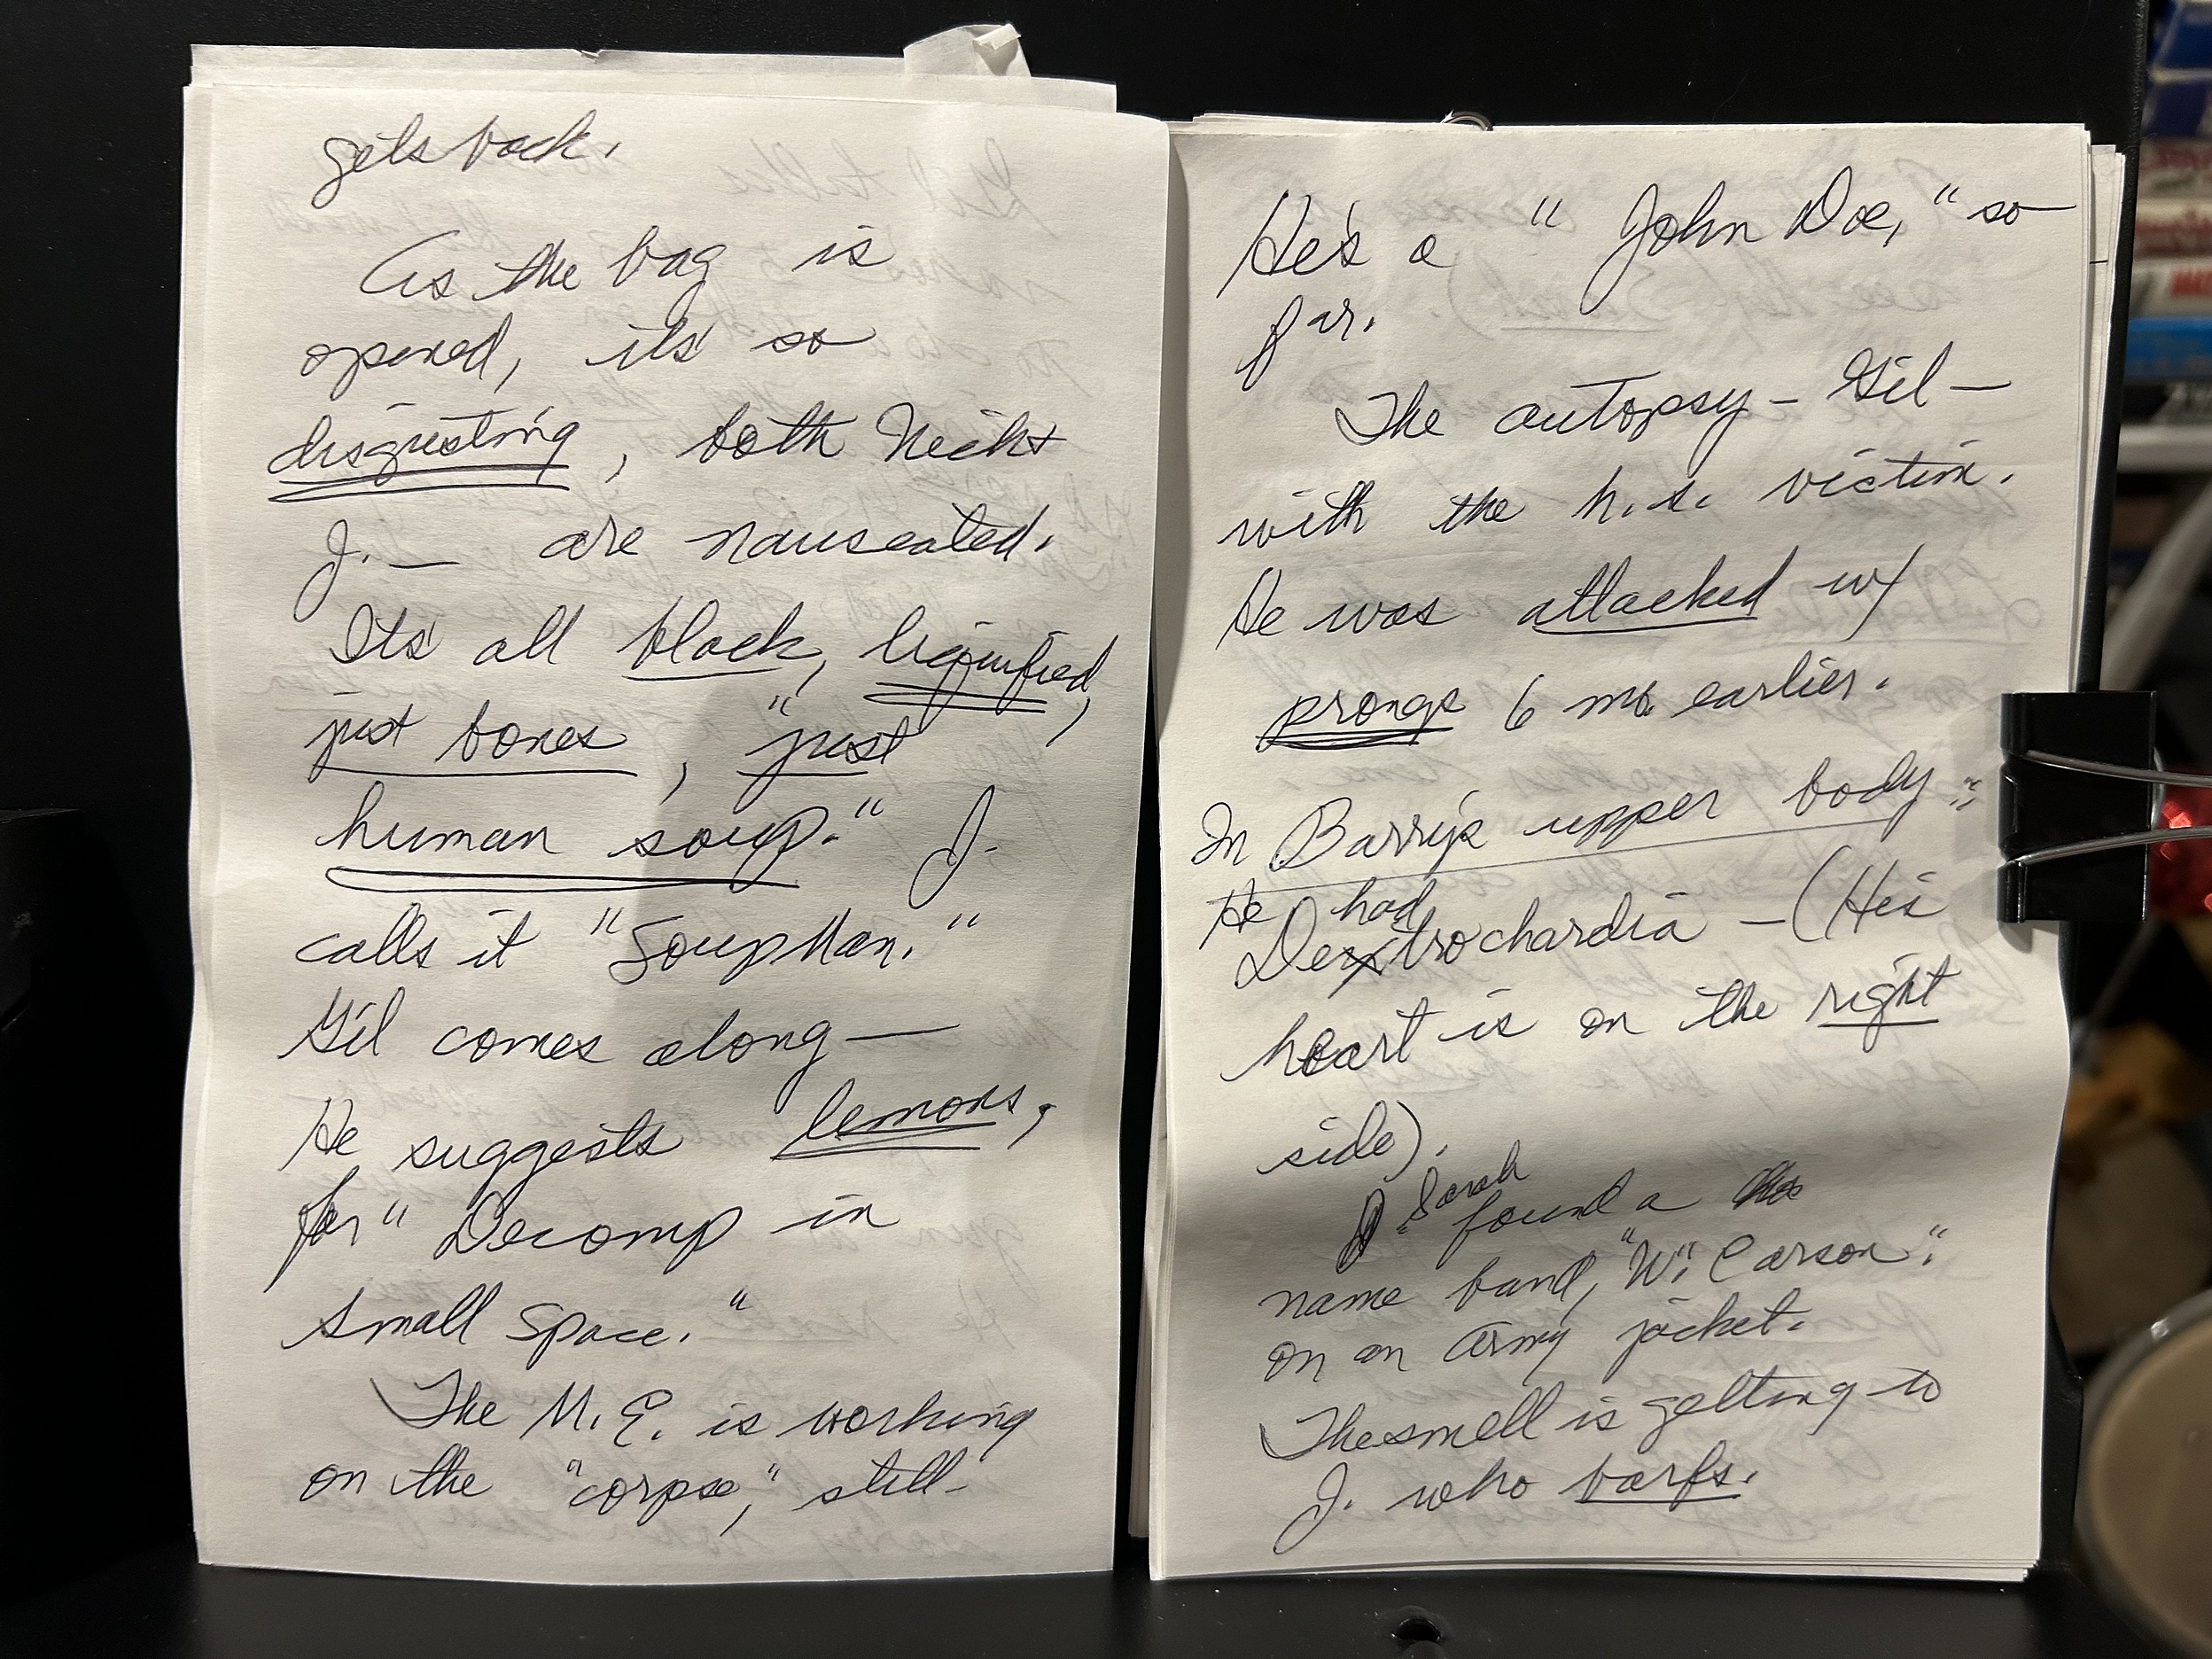 gets back.
As the bag is
opened, it's so
disgusting, both Nick +
J. — are nauseated.
It's all black, liquified,
just bones, "just
human soup." J.
calls it "Soup Man."
Gil comes along —
He suggests lemons,
for "Decomp in
small space."
The M.E. is working
on the "corpse," still
He's a "John Doe," so
far.
The autopsy - Gil -
with the h.s. victim.
He was attacked w/
prongs 6 mo. earlier.
In Barry's upper body:
He had
Dextrochardia - (His
heart is on the right
side).
Sarah
found a
name band, "W. Carson".
on an army jacket.
The smell is getting to
J. who barfs.